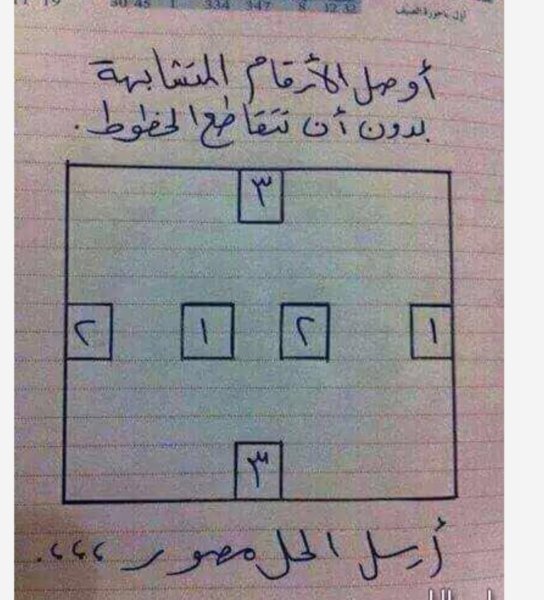 30 45 1 334 347 8 12 32
أوصل الأرقام المتشابهة
بدون أن تتقاطع الخطوط.
٣
٢ ١ ٢ ١
٣
أرسل الحل مصور ،،،،